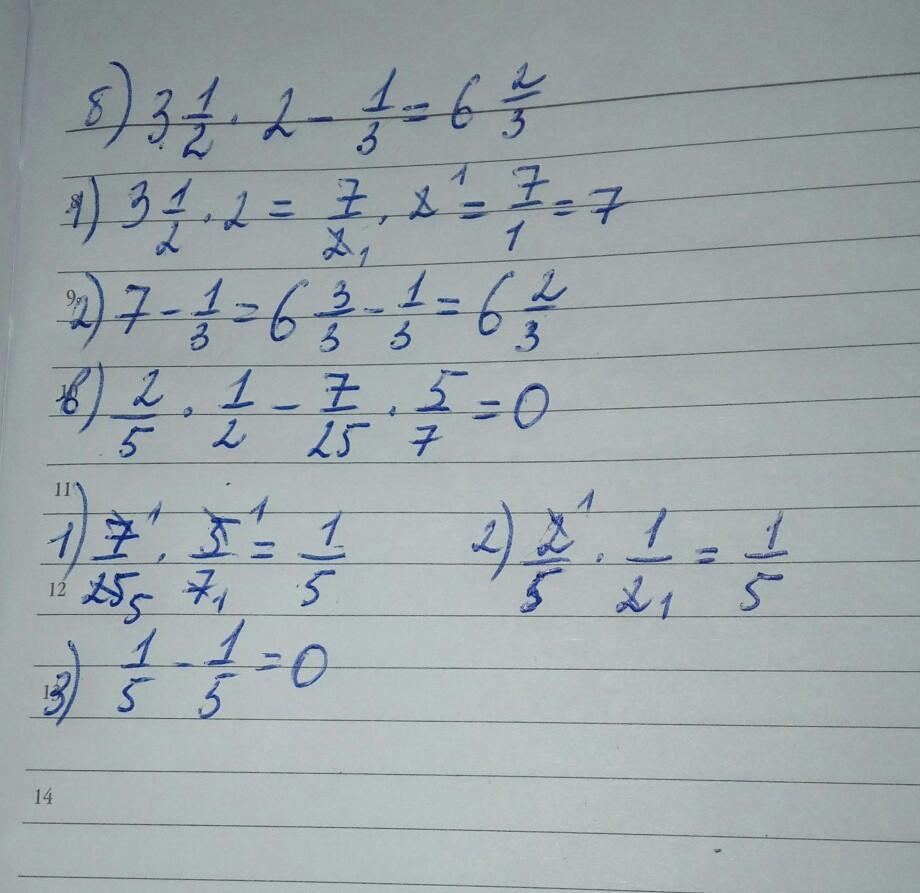 б) 3 1/2 · 2 - 1/3 = 6 2/3
1) 3 1/2 · 2 = 7/2 1 · 2 1 = 7/1 = 7
9
2) 7 - 1/3 = 6 3/3 - 1/3 = 6 2/3
в) 2/5 · 1/2 - 7/25 · 5/7 = 0
11
1) 7 1/25 5 · 5 1/7 1 = 1/5 2) 2 1/5 · 1/2 1 = 1/5
12
3) 1/5 - 1/5 = 0
14